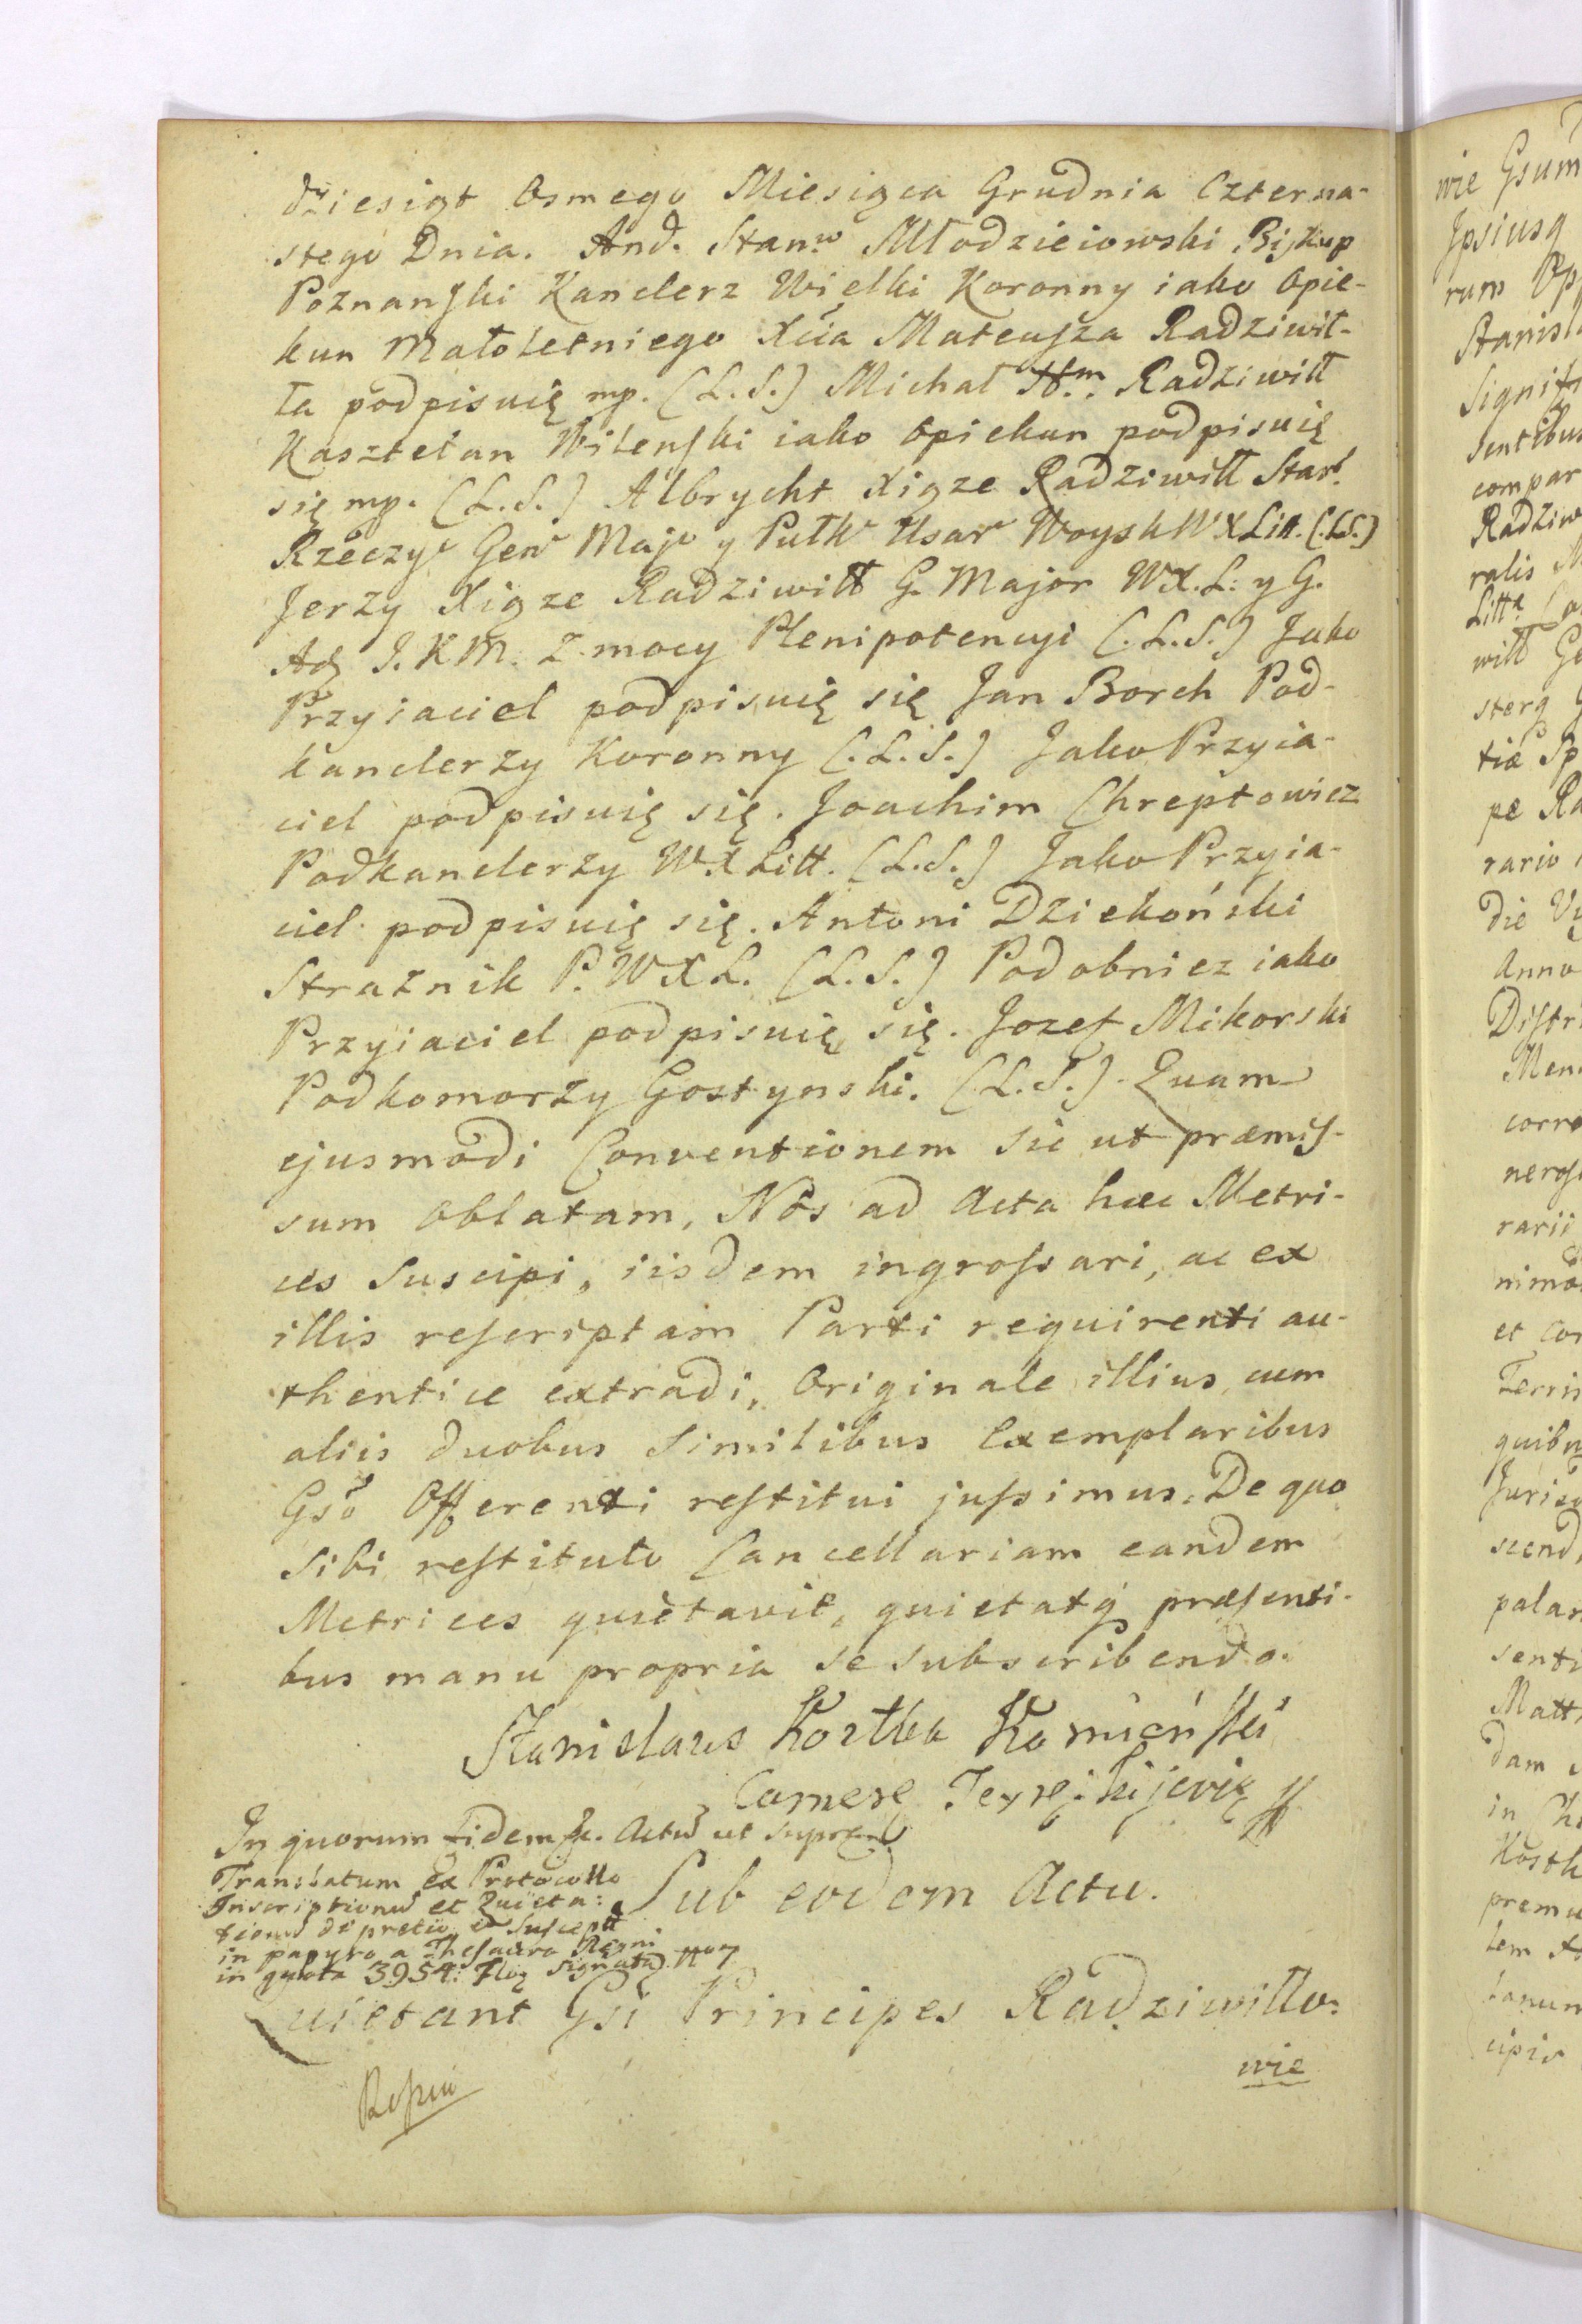 dziesiąt Osmego Miesiąca Grudnia Czterna-
stego Dnia. And. Stanw Młodzieiowski Biskup
Poznanski Kanclerz Wielki Koronny iako Opie-
kun Małoletniego Xcia Mateusza Radziwił-
ła podpisuię mp. (L.S.) Michał Hm: Radziwiłł
Kasztelan Wilenski iako Opiekun podpisuię
się mp. (L.S.) Albrycht Xiąze Radziwiłł Start
Rzeczyc Genl Major y Pułk Usar Woysk WXLitt. (.LS.)
Jerzy Xiąze Radziwiłł G. Major WX.L: y G.
Adj J.K.M. Z mocy Plenipotencyi (.L.S.) Jako
Przyiaciel podpisuię się Jan Borch Pod-
kanclerzy Koronny (.L.S.) Jako Przyia-
ciel podpisuię się. Joachim Chreptowicz
Podkanclerzy W.X Litt. (L.S.) Jako Przyia-
ciel podpisuię się. Antoni Dziekoński
Straznik P. WXL. (L.S.) Podobniez iako
Przyiaciel podpisuię się. Jozef Mikorski
Podkomorzy Gostynski. (L.S.). Quam
ejusmodi Conventionem sic ut præmis-
sum Oblatam, Nos ad Acta hæc Metri-
ces Suscipi, iisdem ingrossari, ac ex
illis rescriptam Parti requirenti au-
thentice extradi, Originale illius cum
aliis duobus Similibus Exemplaribus
Gso Offerenti restitui jussimus. De quo
Sibi restituto Cancellariam eandem
Metrices quietavit, quietatq præsenti-
bus manu propria se subscribendo.
Stanislaus Kostka Kamieński
In quorum Fidem &c. Actũ ut supra
Translatum Ex Protocollo
Inscriptionũ et Quieta:
in papyro a Thesauro Regni
in quota 3954:
Sub eodem Actu.
Quietant Gsi Principes Radziwiłło:
wie